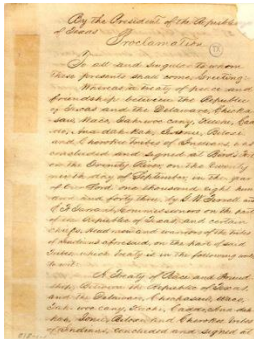 By the President of the Republic
of Texas
Proclamation
To all and singular to whom
these presents shall come, Greeting:
Whereas a treaty of peace and
friendship between the Republic
of Texas and the Delaware, Chicka-
saw, Waco, Tah-woc-cany, Keechi, Cad-
do, Ana-dah-kah, Ionie, Biloxi
and Cherokee tribes of Indians was
concluded and signed at Bird's Fort
on the Trinity River, on the twenty
ninth day of September, in the year
of our Lord one thousand eight hun-
and forty three, by G. W. Terrell and
E. H. Tarrant, Commissioners on the part
of the Republic of Texas, and certain
chiefs, head men and warriors of the tribes
of Indians aforesaid, on the part of said
tribes, which treaty is in the following
A Treaty of Peace and Friend
ship, Between the Republic of Texas,
and the Delaware, Chickasaw, Waco,
Tah-woc-cany, Keechi, Caddo, Ana-dah-
kah, Ionie, Biloxi and Cherokee tribes
of Indians, concluded and signed at